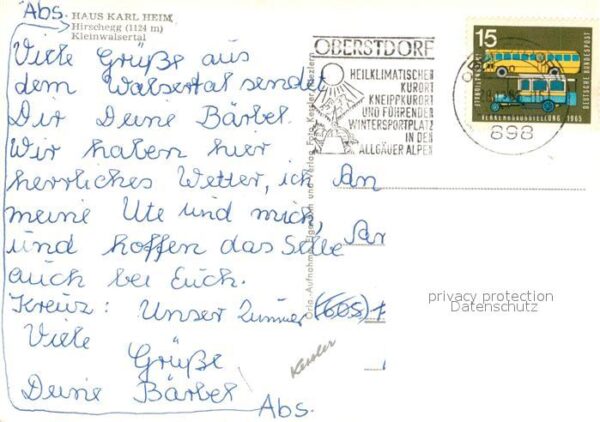 Abs. HAUS KARL HEIM
Hirschegg (1124 m)
Kleinwalsertal
Viele Grüße aus
dem Walsertal sendet
Dir Deine Bärbel.
Wir haben hier
herrliches Wetter, ich
meine Ute und mich,
und hoffen das Selbe
auch bei Euch.
Kreuz: Unser Zimmer (605)
Viele
Grüße
Deine Bärbel
Abs.
OBERSTDORF
HEILKLIMATISCHER
KURORT
KNEIPPKURORT
UND FÜHRENDER
WINTERSPORTPLATZ
IN DEN
ALLGÄUER ALPEN
15
DEUTSCHE BUNDESPOST
VERKEHRSAUSSTELLUNG 1965
898
An
privacy protection
Datenschutz
Kessler